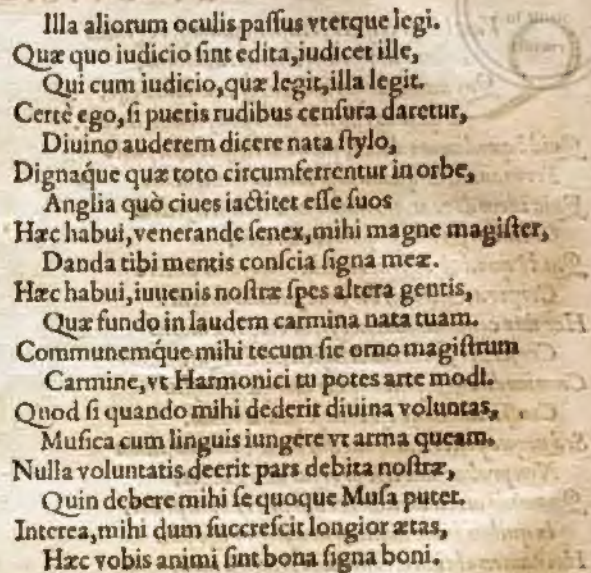 Illa aliorum oculis paſſus vterque legi.
Quæ quo iudicio ſint edita, iudicet ille,
Qui cum iudicio, quæ legit, illa legit.
Certè ego, ſi pueris rudibus cenſura daretur,
Diuino auderem dicere nata ſtylo,
Dignáque quæ toto circumferrentur in orbe,
Anglia quò ciues iactitet eſſe ſuos
Hæc habui, venerande ſenex, mihi magne magiſter,
Danda tibi mentis conſcia ſigna meæ.
Hæc habui, iuuenis noſtræ ſpes altera gentis,
Quæ fundo in laudem carmina nata tuam.
Communemq́ue mihi tecum ſic orno magiſtrum
Carmine, vt Harmonici tu potes arte modi.
Quod ſi quando mihi dederit diuina voluntas,
Muſica cum linguis iungere vt arma queam.
Nulla voluntatis deerit pars debita noſtræ,
Quin debere mihi ſe quoque Muſa putet.
Interea, mihi dum ſuccreſcit longior ætas,
Hæc vobis animi ſint bona ſigna boni.